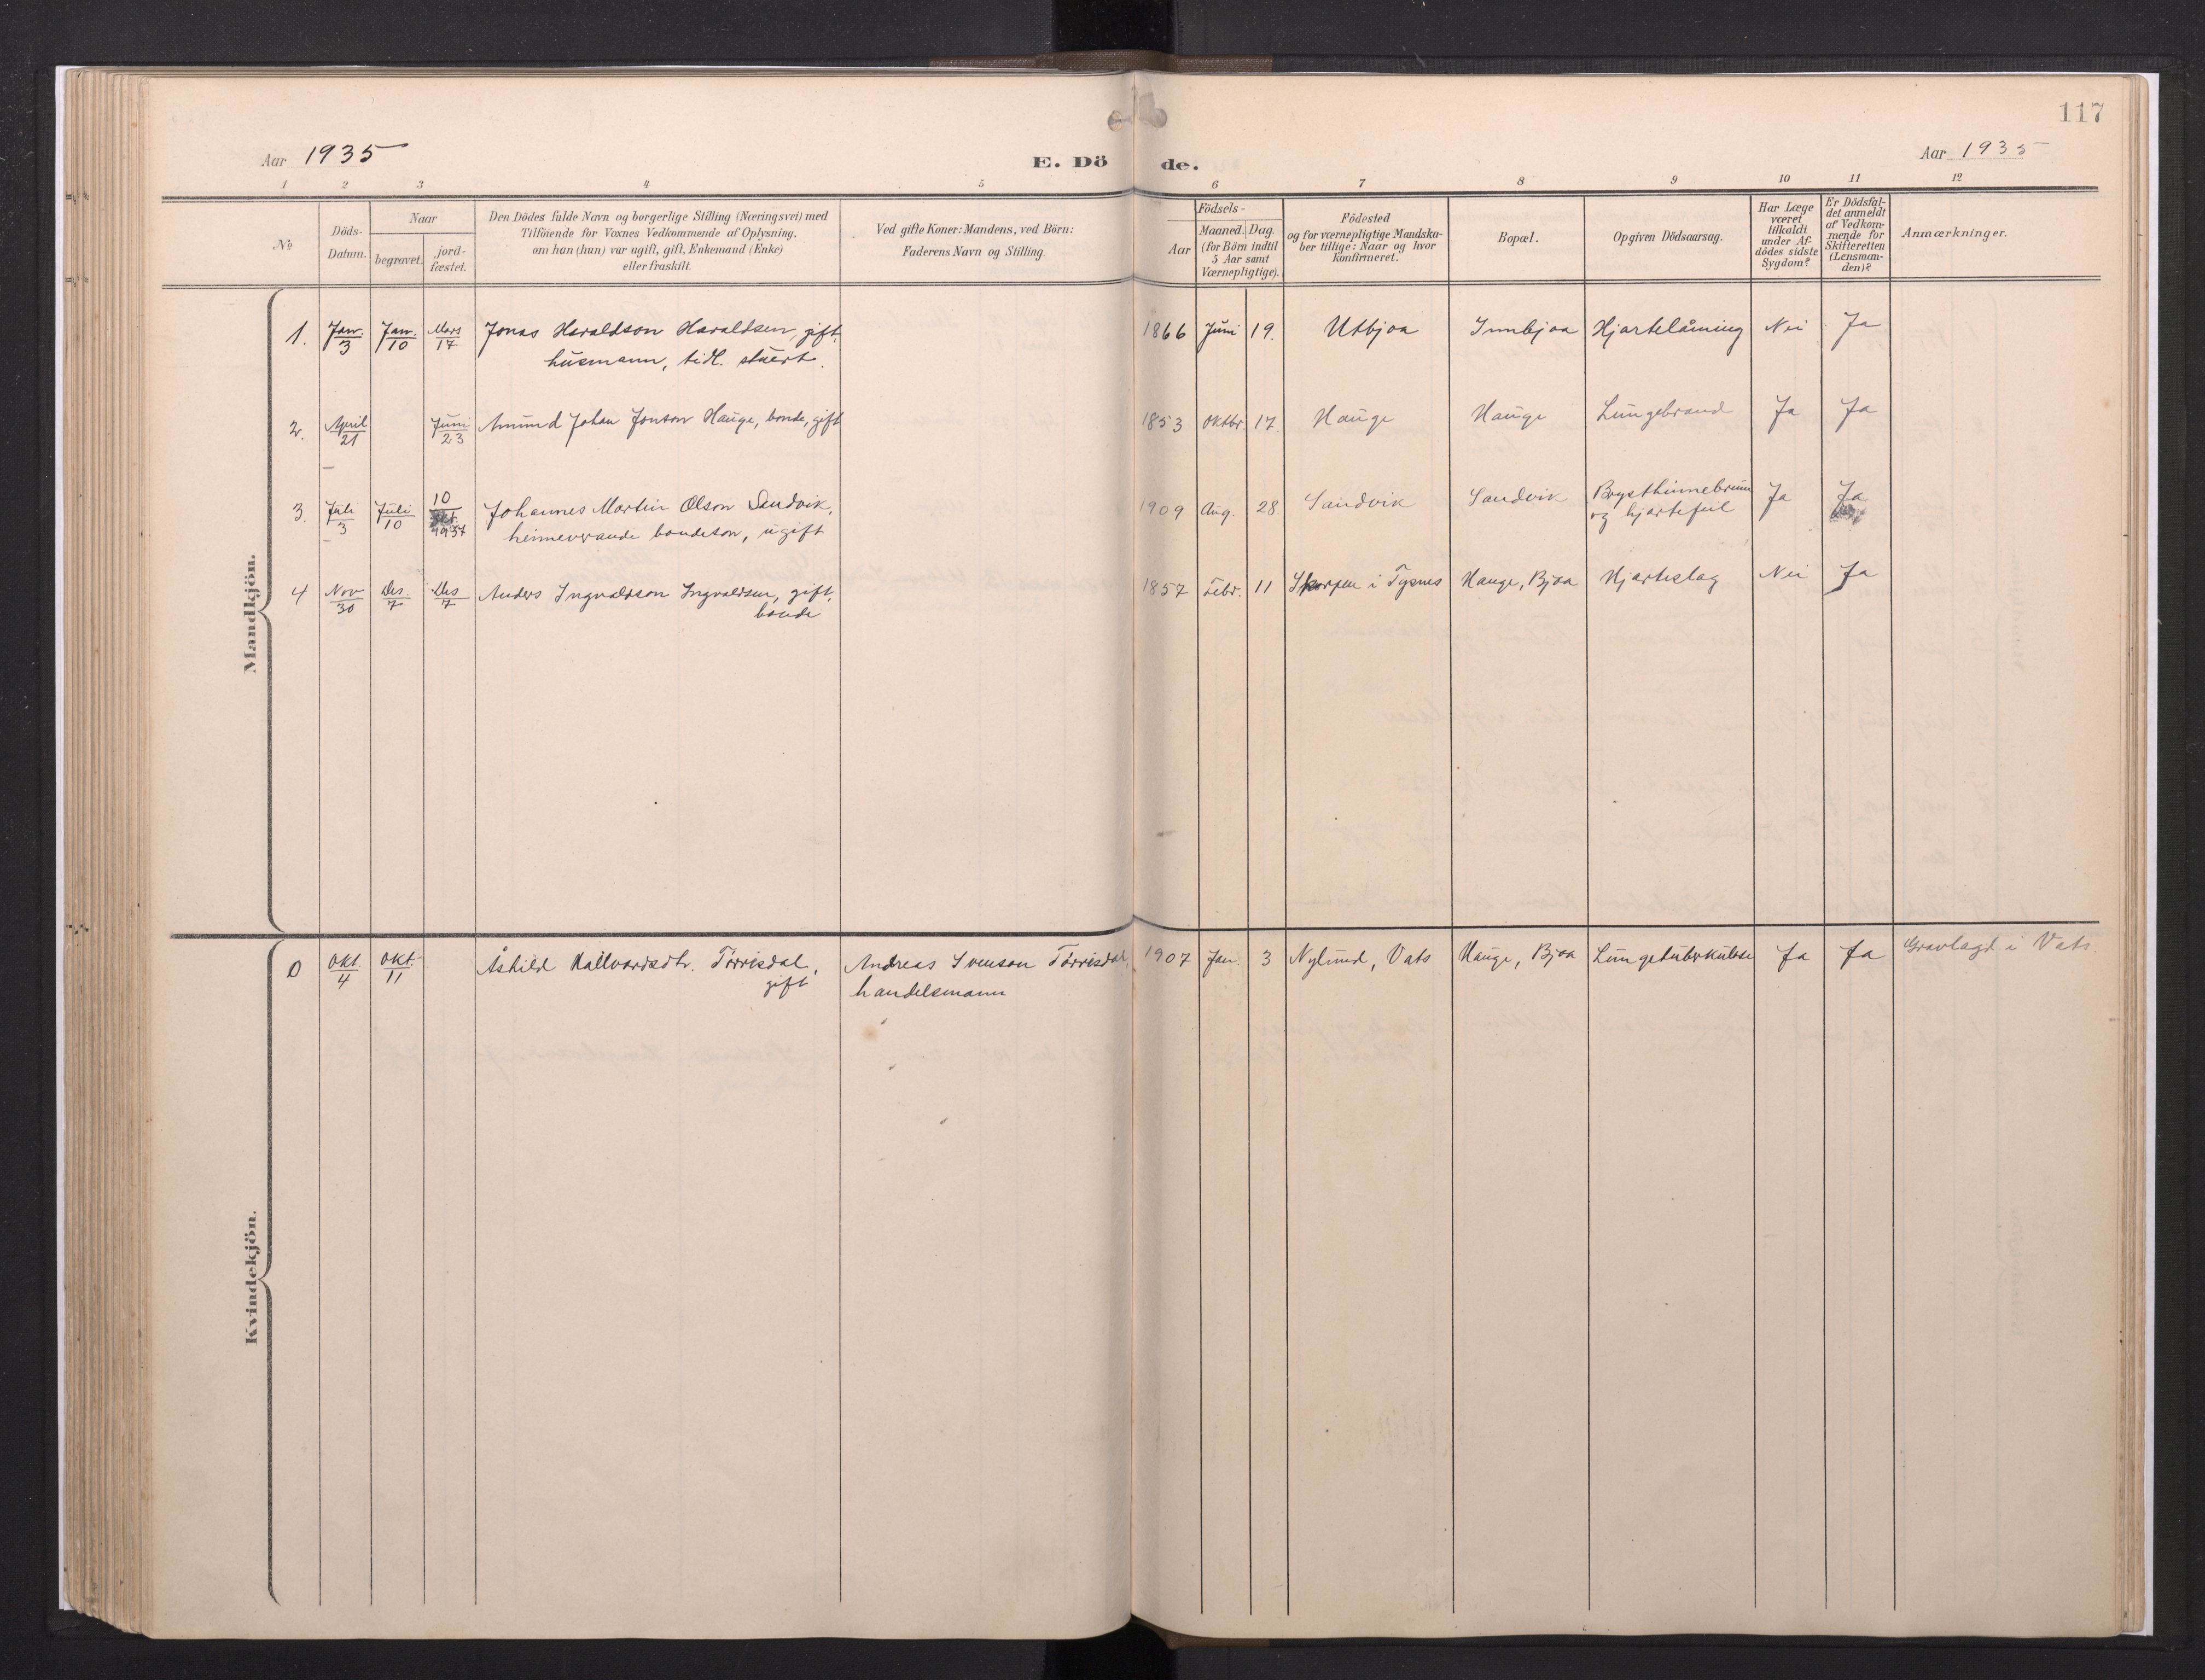 117
Aar 1935
E. Dö de.
Aar 1935
1 2 3 4 5 6 7 8 9 10 11 12
№
Döds-
Datum.
Naar
begravet.
jord-
fæstet.
Den Dödes fulde Navn og borgerlige Stilling (Næringsvei) med
Tilföiende for Voxnes Vedkommende af Oplysning,
om han (hun) var ugift, gift, Enkemand (Enke)
eller fraskilt.
Ved gifte Koner: Mandens, ved Börn:
Faderens Navn og Stilling.
Födsels-
Aar
Maaned. Dag.
(for Börn indtil
5 Aar samt
Værnepligtige).
Födested
og for værnepligtige Mandska-
ber tillige: Naar og hvor
konfirmeret.
Bopæl.
Opgiven Dödsaarsag.
Har Læge
været
tilkaldt
under Af-
dödes sidste
Sygdom?
Er Dödsfal-
det anmeldt
af Vedkom-
mende for
Skifteretten
(Lensman-
den)?
Anmærkninger.
Mandkjön.
1. Jan. 3 Jan. 10 Mars 17 Jonas Haraldson Haraldsen, gift, 1866 Juni 19. Utbjoa Innbjoa Hjartelåming Nei Ja
husmann, tidl. stuert.
2. April 21 Juni 23 Amund Johan Jonson Hauge, bonde, gift 1853 Oktbr. 17. Hauge Hauge Lungebrand Ja Ja
3. Juli 3 Juli 10 10 1937 Johannes Martin Olson Sandvik, 1909 Aug. 28 Sandvik Sandvik Brysthinnebrun Ja Ja
heimeverande bondeson, ugift og hjartefeil
4 Nov 30 Des. 7 Des 7 Anders Ingvaldson Ingvaldsen, gift, 1857 Febr. 11 Skorpen i Tysnes Hauge, Bjoa Hjarteslag Nei Ja
bonde
Kvindekjön.
0 Okt. 4 Okt. 11 Åshild Hallvardsdtr. Tørrisdal, Andreas Svenson Tørrisdal, 1907 Jan. 3 Nylund, Vats Hauge, Bjoa Lungetuberkulose Ja Ja Gravlagd i Vats
gift handelsmann